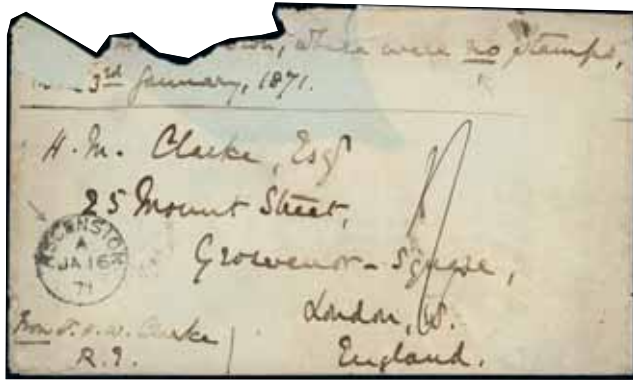 where were no stamps,
3rd January, 1871.
H. M. Clarke, Esqr
25 Mount Street,
Grosvenor-Square,
London, W.
England.
ASCENSION
A
JA 16
71
From F. A. W. Clarke
R. E.